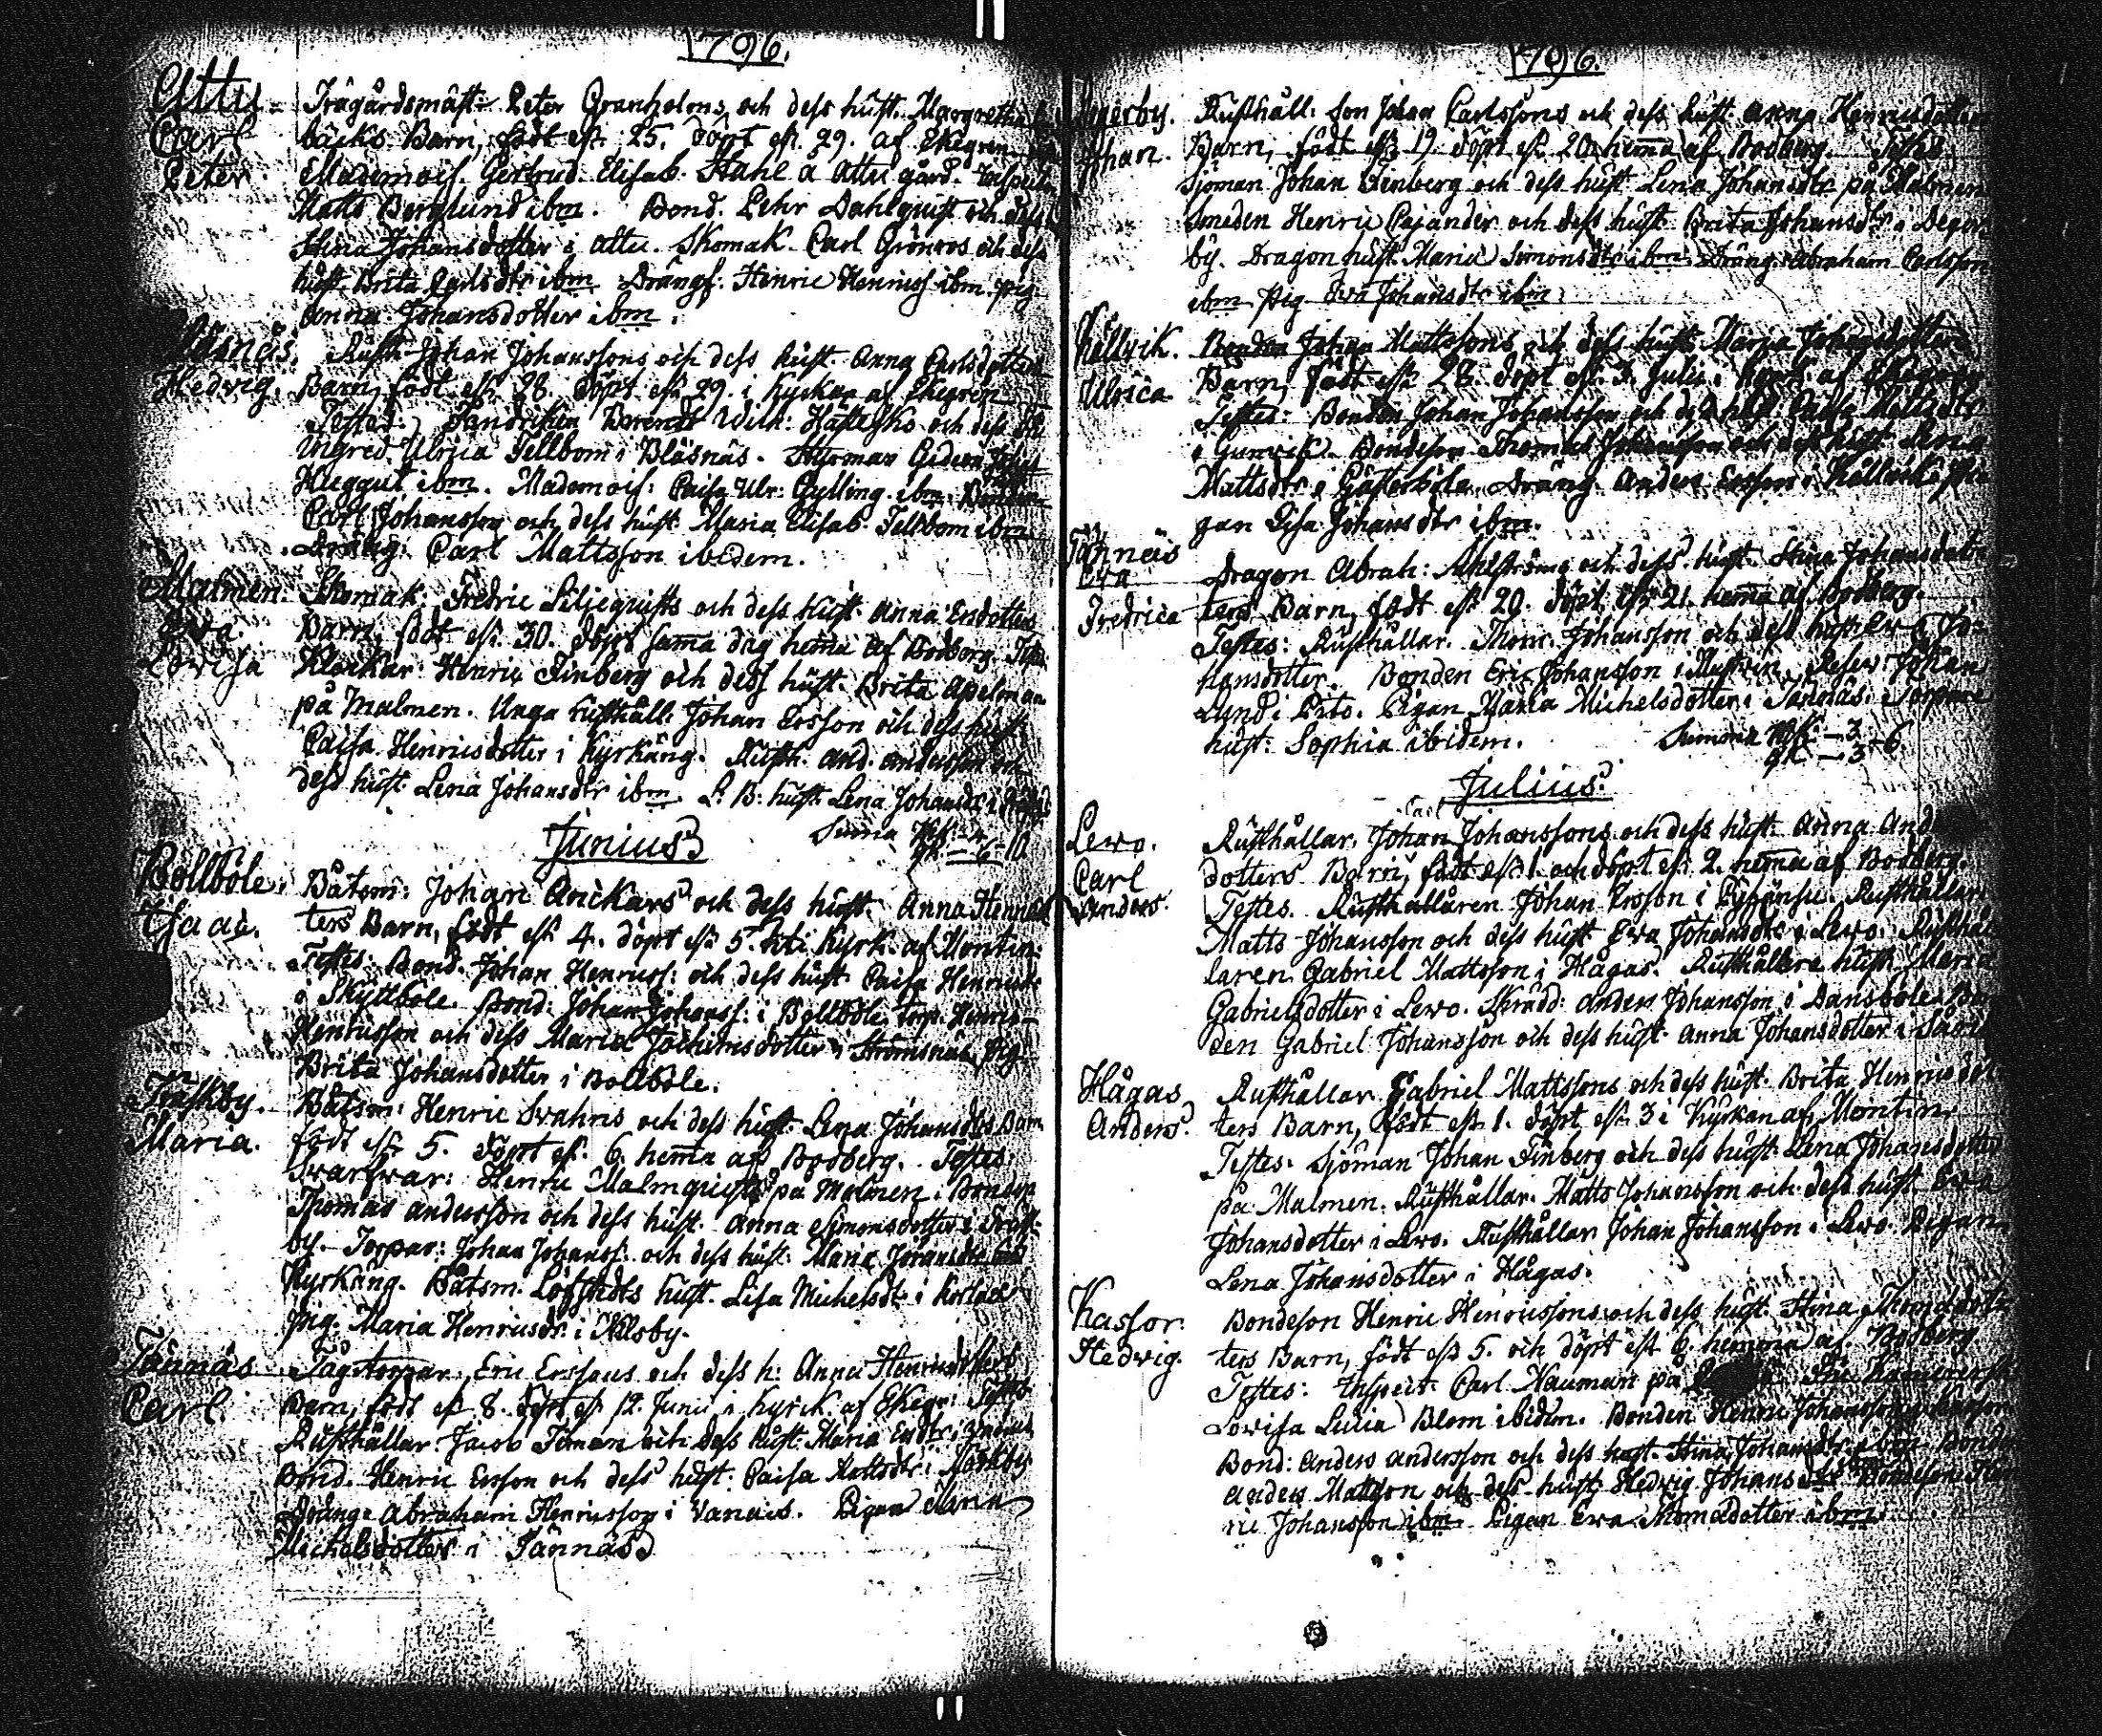 1796.
Attu
Carl
Peter
Trägårdsmäst: Peter Granholms och dess hust. Margretha
bäcks Barn, födt eft 25. döpt eft. 29. af Ekegren
Mademois. Gertrud Elisab. Stahl å Attu gård. Inspector
Matts Berglund ibm. Bond. Pehr Dahlquist och dess
Stina Johansdotter i Attu. Skomak. Carl Grönros och dess
hust. Brita Carlsdtr ibm. Drängs. Henric Henricss ibm. pig.
Anna Johansdotter ibm.
Hedvig.
Rusth. Johan Johanssons och dess hust. Anna Carlsdotters
Barn, födt eft 28. döpt eft 29. i Kyrkan af Ekegren
Testes: Fendriken Berendt Wilh: Hästesko och dess
Ingred. Ulrica Tellbom i Bläsnäs. Styrman Gideon
Huggut ibm. Mademois: Caisa Ulr: Gylling ibm. Bonden
Carl Johansson och dess hust. Maria Elisab. Tellbom ibm
Dräng: Carl Mattsson ibidem.
Malmen.
Eva
Lovisa
Skomak. Fredric Liljequists och dess hust. Anna Ersdotters
Barn, födt eft. 30. döpt sama dag hema af Bodberg. Test.
Klockar. Henric Finberg och dess hust. Brita Apelman
på Malmen. Unga Rusthåll. Johan Ersson och dess hust
Caisa Henricsdotter i Kyrkäng. Rusth. And. Andersson och
dess hust. Lena Johansdtr ibm. L. B: hust. Lena Johansdtr i
Suma MK - 4
QK - 6 - 10
Junius
Bollböle.
Isaac.
Båtsm: Johan Anckars och dess hust. Anna Henricsdot
ters Barn, födt eft 4. döpt eft 5. uti Kyrk. af Montin.
Testes: Bond. Johan Henricss: och dess hust. Caisa Henricsdtr
i Skyttböle. Bond: Johan Johanss: i Bollböle. torp. Henric
Henricsson och dess Maria Jochimsdotter i Strömsnäs pig
Brita Johansdotter i Bollböle.
Träskby.
Maria.
Båtsm: Henric Svahns och dess hust. Lena Johansdtrs Barn
födt eft. 5. döpt eft. 6. hema af Bodberg. Testes.
Svarfvar: Henric Malmquist på Malmen. Bonden
Thomas Andersson och dess hust. Anna Simonsdotter i Träsk-
by. Torpar: Johan Johanss: och dess hust. Maria Göransdtr
Kyrkäng. Båtsm. Löfstedts hust. Lisa Michelsdtr i Korlax
Pig. Maria Henricsdr i Nilsby.
Tännäs
Carl
Tågtorpar. Eric Erssons och dess h: Anna Henricsdotters
Barn, födt eft 8. döpt eft 12. Junii i Kyrck. af Ekegr: Testes
Rusthållar: Jacob Timan och dess hust. Maria Ersdtr i
Bond. Henric Ersson och dess hust: Caisa Mattsdtr i
Dräng. Abraham Henricsson i Vanäis. Pigan Maria
Michelsdotter i Tännäs
1796.
Johan.
Rusthåll: son Johan Carlssons och dess hust. Anna Henricsdotter
Barn, födt eft. 19. döpt eft 20 hema af Bodberg. Testes
Sjöman Johan Finberg och dess hust. Lena Johansdtr på Malmen
Smeden Henric Pajander och dess hust Brita Johansdtr i Deger-
by. Dragon hust. Maria Simonsdtr ibm. Dräng. Abraham Carlsson
ibm Pig Eva Johansdtr ibm.
Källvik.
Ulrica
Bonden Johan Mattssons och dess hust. Maria Johansdotters
Barn, födt eft 28. döpt eft. 3. Julii i Kyrk. af Ekegren
Testes: Bonden Johan Johansson och dess hust. Caisa Mattsdtr
i Gunvik. Bondeson Thomas Johansson och dess hust. Lena
Mattsdtr i Gästerböle. Dräng Anders Ersson i Källvik. Pi
gan Lisa Johansdtr ibm.
Tännäs
Eva
Fredrica
Dragon Abrah: Ahlströms och dess hust. Stina Johansdot
ters Barn, födt eft 20. döpt eft 21. hema af Bodberg.
Testes: Rusthållar. Thom. Johansson och dess hust. Eva Jo-
hansdotter. Bonden Eric Johansson i. Reserv. Johan
Lund i Dito. Pigan Maria Michelsdotter i Tännäs. Torpare
hust: Sophia ibidem.
Summa MK. - 3
QK - 3 - 6.
Julius.
Lewo.
Carl
Anders.
Carl
Rusthållar. Johan Johanssons och dess hust. Anna And
dotters Barn, födt eft 1. och döpt eft. 2. hema af Bodberg.
Testes. Rusthållaren Johan Ersson i. Rusthållar
Matts Johansson och dess hust Eva Johansdtr i Lewo. Rusthål
laren Gabriel Mattsson i Hågas. Rusthållare hust. Maria
Gabrielsdotter i Lewo. Skrädd: Anders Johansson i Dansböle. Bon
den Gabriel Johansson och dess hust Anna Johansdotter i
Hågas
Anders.
Rusthållar Gabriel Mattssons och dess hust. Brita Henricsdot
ters Barn, födt eft 1. döpt eft. 3 i Kyrkan af Montin.
Testes. Sjöman Johan Finberg och dess hust. Lena Johansdotter
på Malmen. Rusthållar. Matts Johansson och dess hust Eva
Johansdotter i Lewo. Rusthållar Johan Johansson i Lewo. Pigan
Lena Johansdotter i Hågas.
Kassor.
Hedvig.
Bondeson Henric Henricssons och dess hust. Stina Thomasdot
ters Barn, födt eft 5. och döpt eft 6. hemma af Bodberg
Testes: Inspect. Carl Nauman på
Lovisa Lucia Blom ibidem. Bonden Henric Johansson i
Bond: Anders Andersson och dess hust. Stina Johansdtr ibm. Bonden
Anders Mattsson och dess hust. Hedvig Johansdtr Bondeson Hen
ric Johansson ibm. Pigan Eva Thomasdotter ibm.